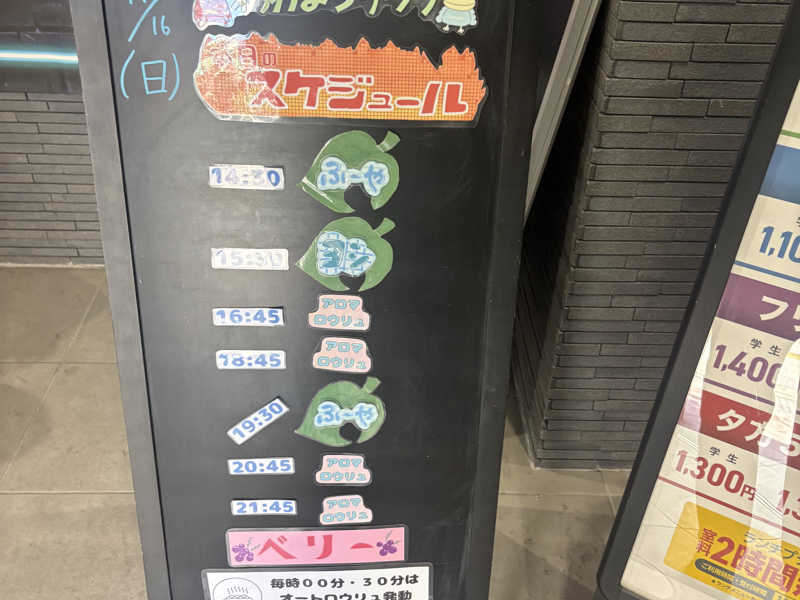 /16
(日)
今日の
スケジュール
14:30
ふーや
15:30
ヨシ
16:45
アロマ
ロウリュ
18:45
アロマ
ロウリュ
19:30
ふーや
20:45
アロマ
ロウリュ
21:45
アロマ
ロウリュ
ベリー
毎時00分・30分は
オートロウリュ発動
フリ
学生
1,400
夕方
学生
1,300円
ランチ
室料
2時間